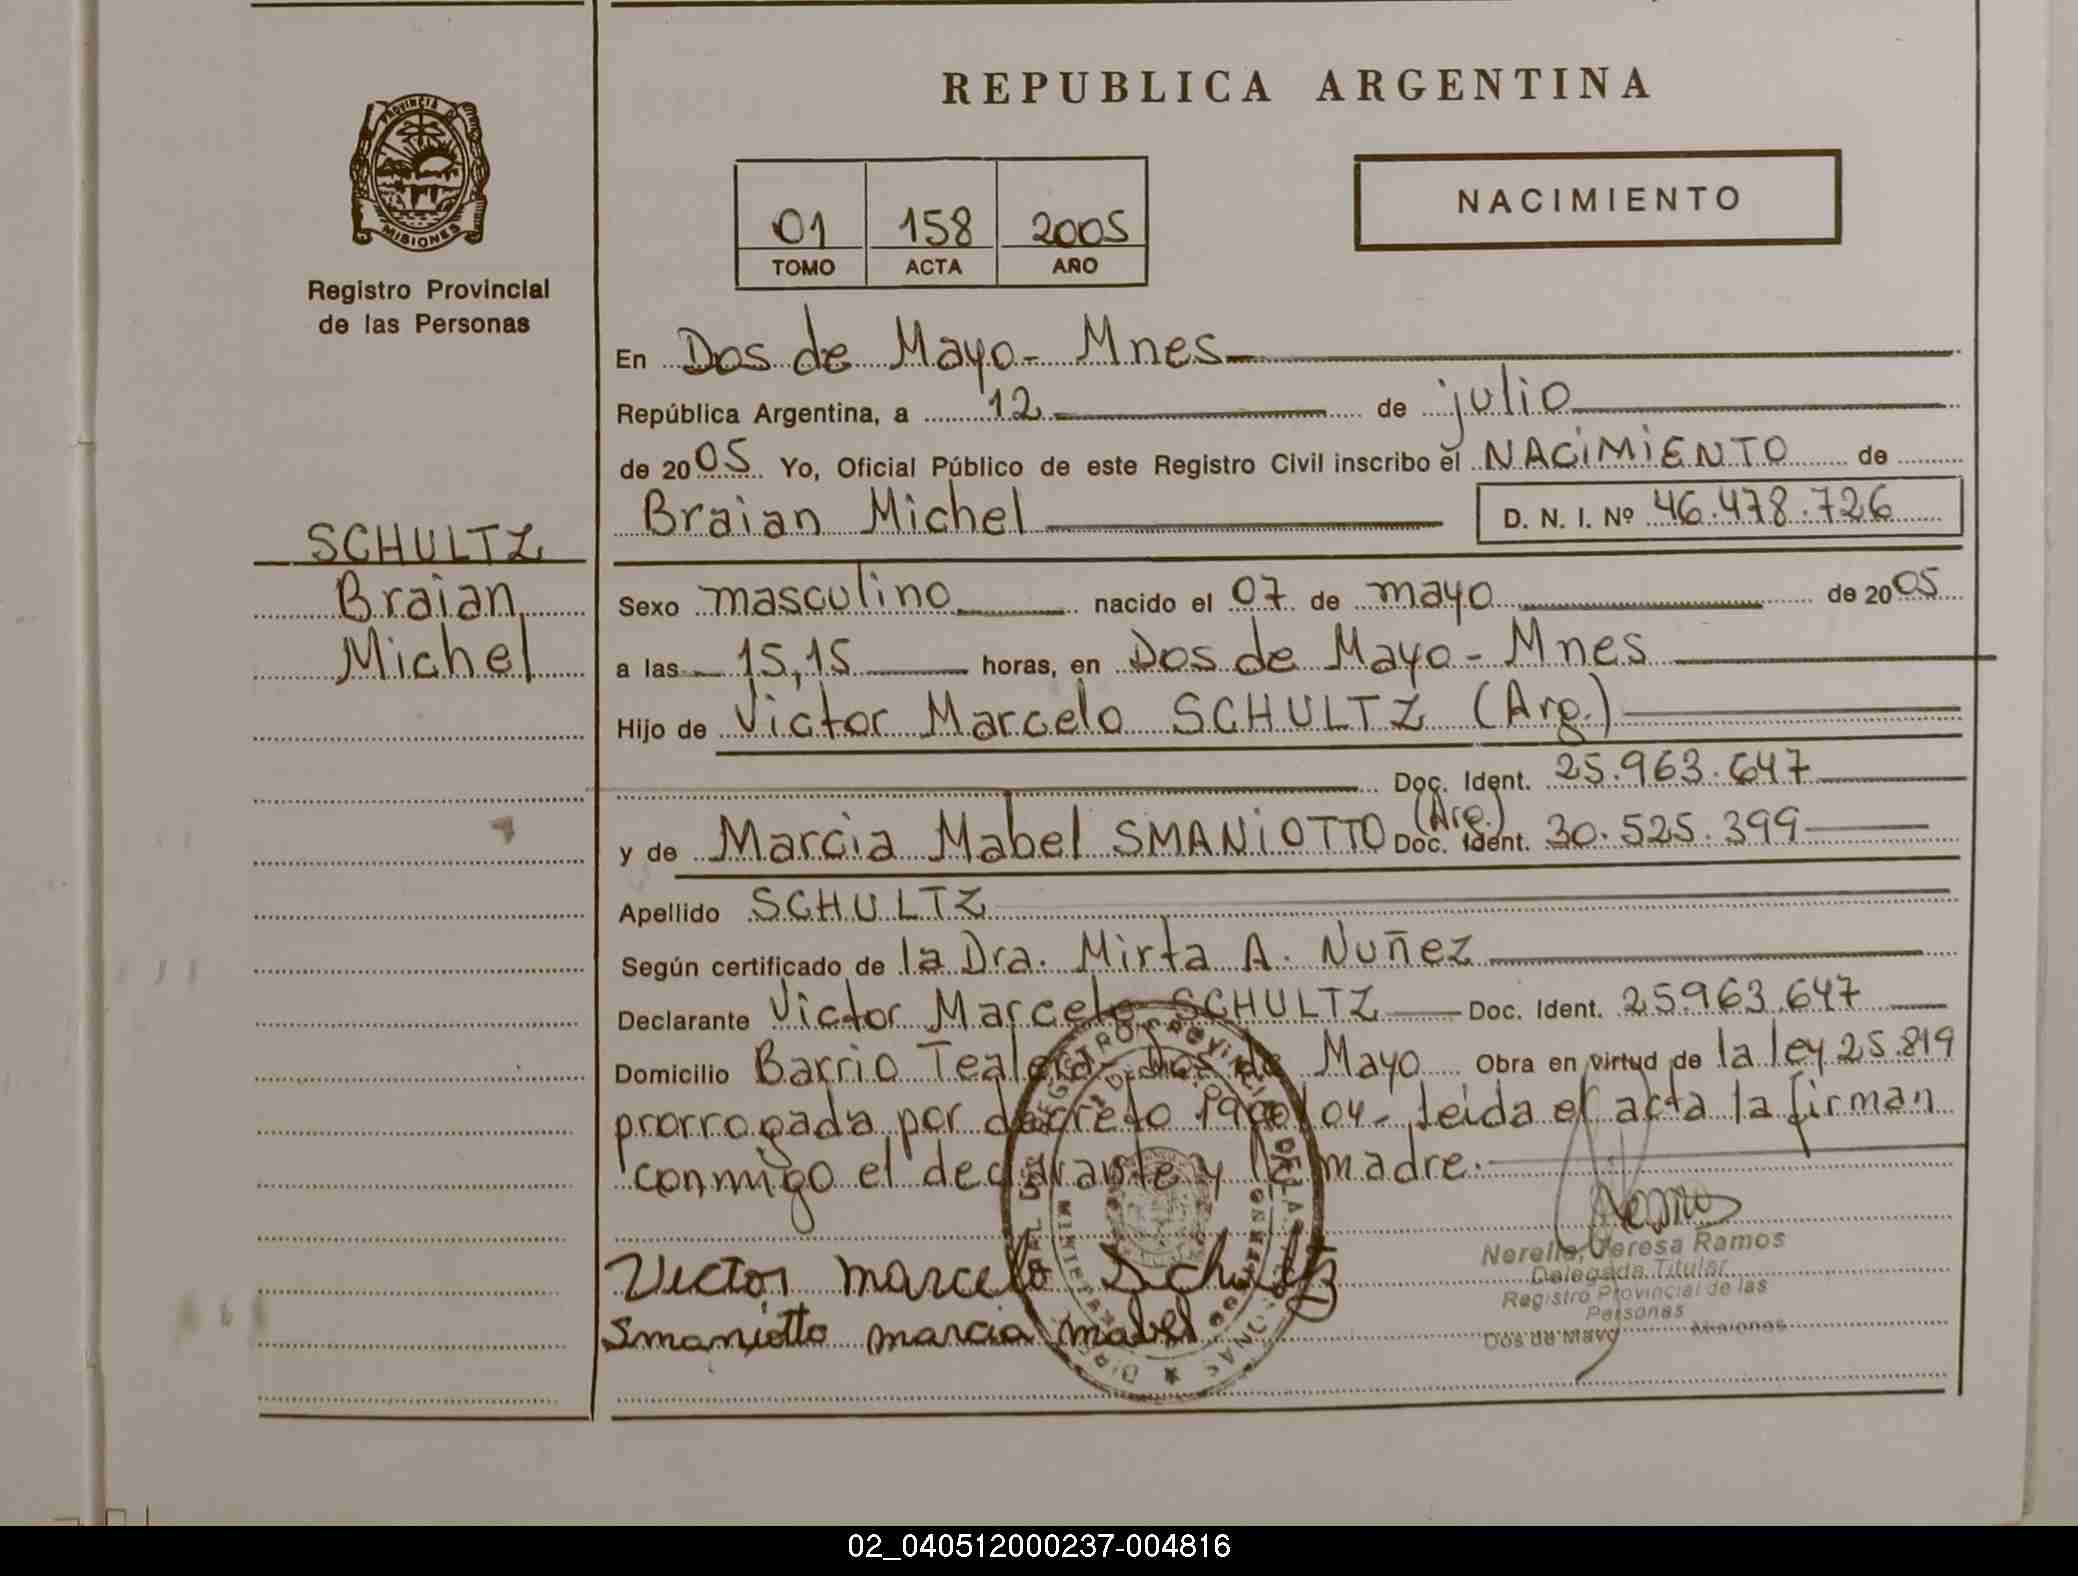 PROVINCIA DE
MISIONES
Registro Provincial
de las Personas
SCHULTZ
Braian
Michel
REPUBLICA ARGENTINA
01 158 2005
TOMO ACTA AÑO
NACIMIENTO
En Dos de Mayo - Mnes
República Argentina, a 12 de julio
de 2005 Yo, Oficial Público de este Registro Civil inscribo el NACIMIENTO de
Braian Michel D. N. I. Nº 46.478.726
Sexo masculino nacido el 07 de mayo de 2005
a las 15,15 horas, en Dos de Mayo - Mnes
Hijo de Victor Marcelo SCHULTZ (Arg.)
Doc. Ident. 25.963.647
y de Marcia Mabel SMANIOTTO (Arg.) Doc. Ident. 30.525.399
Apellido SCHULTZ
Según certificado de la Dra. Mirta A. Nuñez
Declarante Victor Marcelo SCHULTZ Doc. Ident. 25963.647
Domicilio Barrio Tealera - Dos de Mayo Obra en virtud de la ley 25.819
prorrogada por decreto 1900/04 - leida el acta la firman
conmigo el declarante y la madre.
Victor marcelo Schultz
Smaniotto marcia mabel
Nerella Teresa Ramos
Delegada Titular
Registro Provincial de las
Personas
Dos de Mayo Misiones
02_040512000237-004816